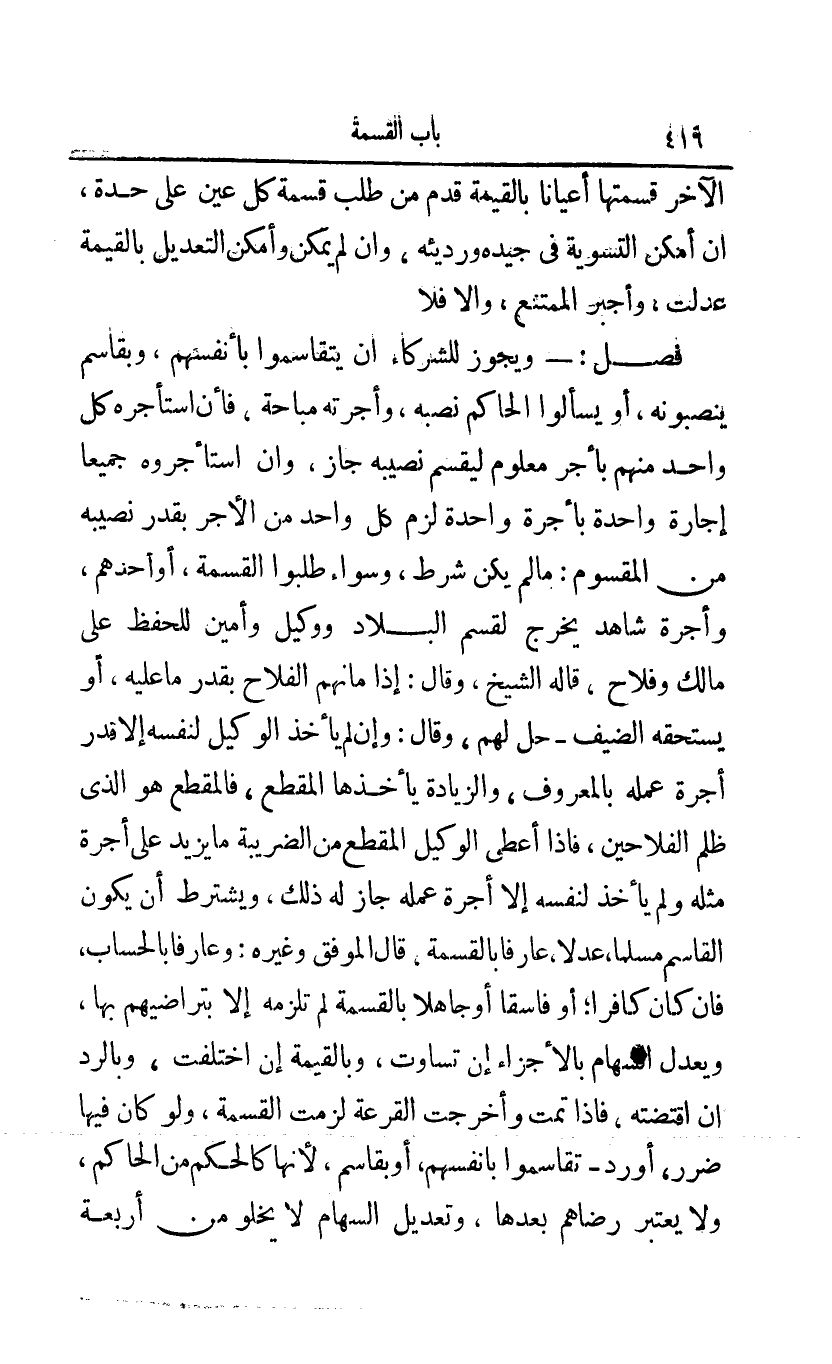 ٤١٩ باب القسمة
الآخر قسمتها أعيانا بالقيمة قدم من طلب قسمة كل عين على حـدة ،
ان أمكن التسوية فى جيده ورديئه ، وان لم يمكن وأمكن التعديل بالقيمة
عدلت ، وأجبر الممتنع ، والا فلا
فصـــل : — ويجوز للشركاء ان يتقاسموا بأنفسهم ، وبقاسم
ينصبونه ، أو يسألوا الحاكم نصبه ، وأجرته مباحة ، فأن استأجره كل
واحـد منهم بأجر معلوم ليقسم نصيبه جاز ، وان استأجروه جميعا
إجارة واحدة بأجرة واحدة لزم كل واحد من الأجر بقدر نصيبه
من المقسوم : مالم يكن شرط ، وسواء طلبوا القسمة ، أو أحدهم ،
وأجرة شاهد يخرج لقسم البـــلاد ووكيل وأمين للحفظ على
مالك وفلاح ، قاله الشيخ ، وقال : إذا مانهم الفلاح بقدر ماعليه ، أو
يستحقه الضيف - حل لهم ، وقال : وإن لم يأخذ الوكيل لنفسه إلا قدر
أجرة عمله بالمعروف ، والزيادة يأخـذها المقطع ، فالمقطع هو الذى
ظلم الفلاحين ، فاذا أعطى الوكيل المقطع من الضريبة مايزيد على أجرة
مثله ولم يأخذ لنفسه إلا أجرة عمله جاز له ذلك ، ويشترط أن يكون
القاسم مسلما، عدلا، عارفا بالقسمة ، قال الموفق وغيره : وعارفا بالحساب،
فان كان كافرا؛ أو فاسقا أوجاهلا بالقسمة لم تلزمه إلا بتراضيهم بها ،
ويعدل السهام بالأجزاء إن تساوت ، وبالقيمة إن اختلفت ، وبالرد
ان اقتضته ، فاذا تمت وأخرجت القرعة لزمت القسمة ، ولو كان فيها
ضرر، أورد - تقاسموا بانفسهم، أو بقاسم ، لأنها كالحـكم من الحاكم ،
ولا يعتبر رضاهم بعدها ، وتعديل السهام لا يخلو من أربعـة